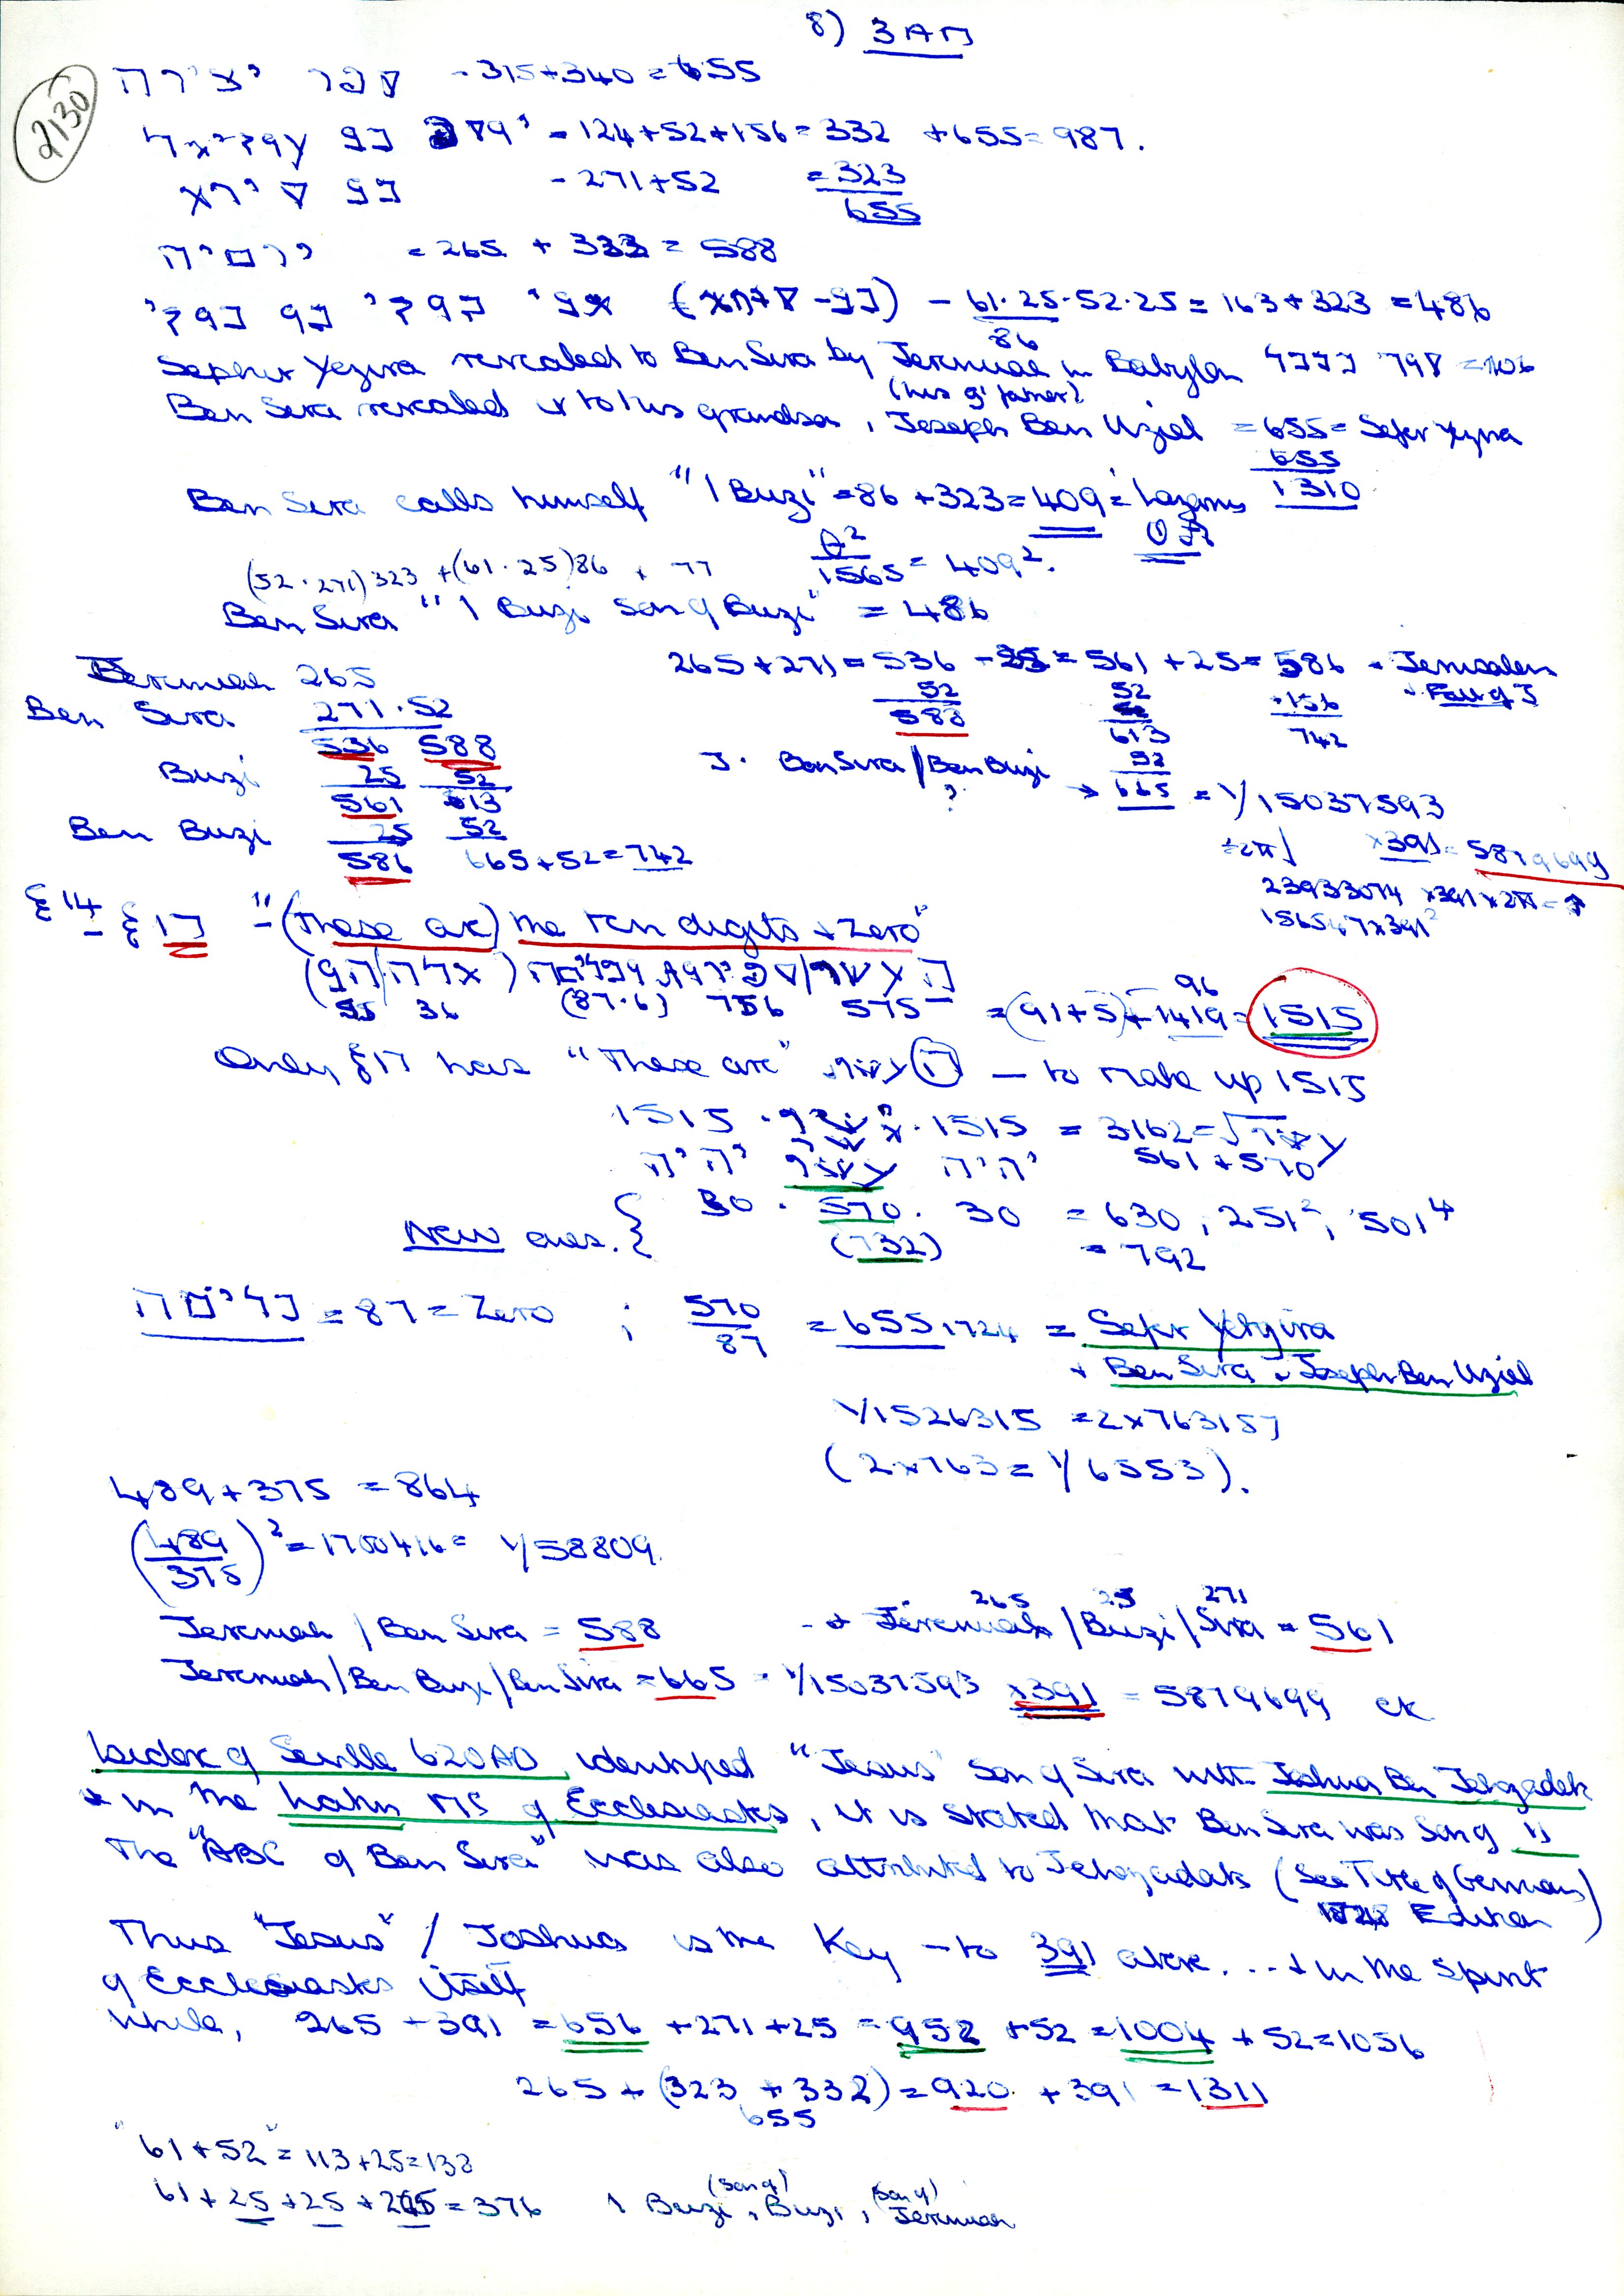 8) 3AM
2130
ספר יצירה - 315+340 = 655
יוסף בן עוזיאל - 124+52+156 = 332 +655 = 987.
בן סירא - 271+52 = 323
655
ירמיה = 265 + 323 = 588
אני בוזי בן בוזי (בן-סירא) - 61·25·52·25 = 163+323 = 486
86
Sepher Yezira revealed to Ben Sira by Jeremiah in Babylon = 106
(his g' father)
Ben Sira revealed it to his grandson, Joseph Ben Uziel = 655 = Sefer Yezira
655
1310
Ben Sira calls himself "I Buzi" = 86 + 323 = 409 = Lazarus
1565 = 409².
(52·271) 323 + (61·25) 86 + 77
Ben Sira "I Buzi son of Buzi" = 486
Jeremiah 265
Ben Sira 271·52
536 588
Buzi 25 52
561 613
Ben Buzi 25 52
586 665+52 = 742
265+271 = 536 - 25 = 561 + 25 = 586 - Jerusalem
+ Fall of J
52 52 +156
588 613 742
J. Ben Sira / Ben Buzi → 665 = 1/15037593
?
52
÷2π ×391 = 5879699
23933074 ×391×2π =
156547×391²
§14 - § 17 - "(These are) the ten digits + Zero"
55 36 (87·6) 756 575 = (91+5) + 1419 = 1515
96
Only §17 has "These are" — to make up 1515
1515 · 1515 = 3162 =
561 + 570
New ones. { 30 · 570 · 30 = 630, 251², 501⁴
(732) = 792
בלימה = 87 = Zero ; 570/87 = 6551724 = Sefer Yetzira
+ Ben Sira + Joseph Ben Uziel
1/1526315 = 2×763157
(2×763 = 1/6553).
489+375 = 864
(489/375)² = 1700416 = 1/58809.
Jeremiah / Ben Sira = 588 - + Jeremiah / Buzi / Sira = 561
265 25 271
Jeremiah / Ben Buzi / Ben Sira = 665 = 1/15037593 ×391 = 5879699 ck
Isidore of Seville 620AD, identified "Jesus" son of Sira with Joshua Ben Jehozadek
+ in the Latin MS of Ecclesiastes, it is stated that Ben Sira was son of "
The "ABC of Ben Sira" was also attributed to Jehozadak (See Title of German)
Edition
Thus "Jesus" / Joshua is the Key - to 391 above. ..+ in the spirit
of Ecclesiastes itself
while, 265 + 391 = 656 + 271 + 25 = 952 + 52 = 1004 + 52 = 1056
265 + (323 + 332) = 920. + 391 = 1311
655
"61+52" = 113+25=138
61 + 25 + 25 + 265 = 376 I Buzi, (son of) Buzi, (son of) Jeremiah